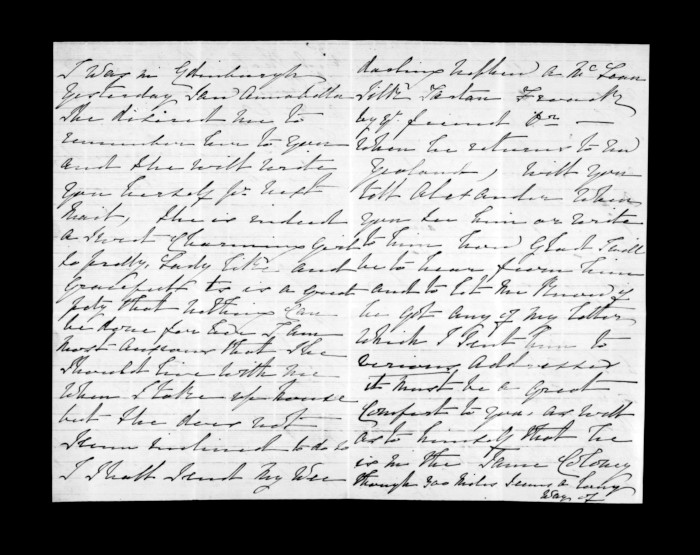 I Was in Edinburgh
Yesterday Saw Annabella
She desired me to
remember her to you
and She will write
you herself pr next
Mail, She is indeed
a Sweet Charming Girl
So pretty, Lady like and
Gracefull tis is a great
pity that nothing Can
be done for her I am
most anxious that She
Should live with me
When I take up house
but She does not
Seem inclined to do so
I Shall Send My Wee
darling Nephew a McLean
Silk Tartan Frock
by yr friend
When he returns to New
Zealand, will you
tell Alexander When
you See him or write
to him how Glad I will
be to hear from him
and to let Me Know if
he got any of my letters
Which I Sent him to
various addresses
it Must be a Great
Comfort to you as well
as to himself that he
is in the Same Colony
though 300 Miles Seems a long
Way of